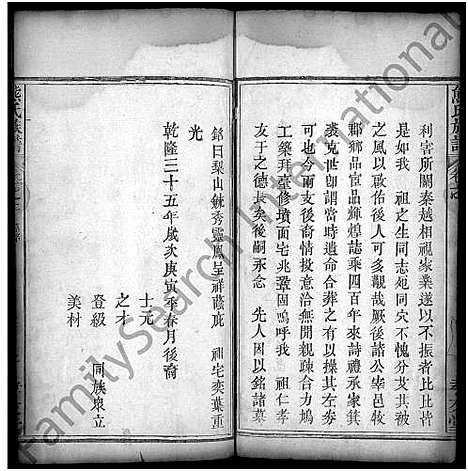 熊氏族譜
利害所關秦越相視家業遂以不振者比比皆
是如我 祖之生同志死同穴不愧分炙被
之風以啟佑後人可多覯哉厥後諸公宰邑牧
郡鄉品宦品輝煌誌乘四百年來詩禮承家箕
裘克世卽謂當時遺命合葬之有以操其左券
可也今雨支後裔情誼意洽無間親疎合力鳩
工築拜臺修墳面宅兆鞏固嗚呼我 祖仁孝
友于之德長矣後嗣永念 先人因以銘諸墓
銘曰梨山鍾秀靈鳳呈祥蔭庇 祖宅奕葉重
光
乾隆三十五年歲次庚寅季春月後裔
士元
之才
登級
美材
同族衆立
熊氏族譜
FamilySearch International